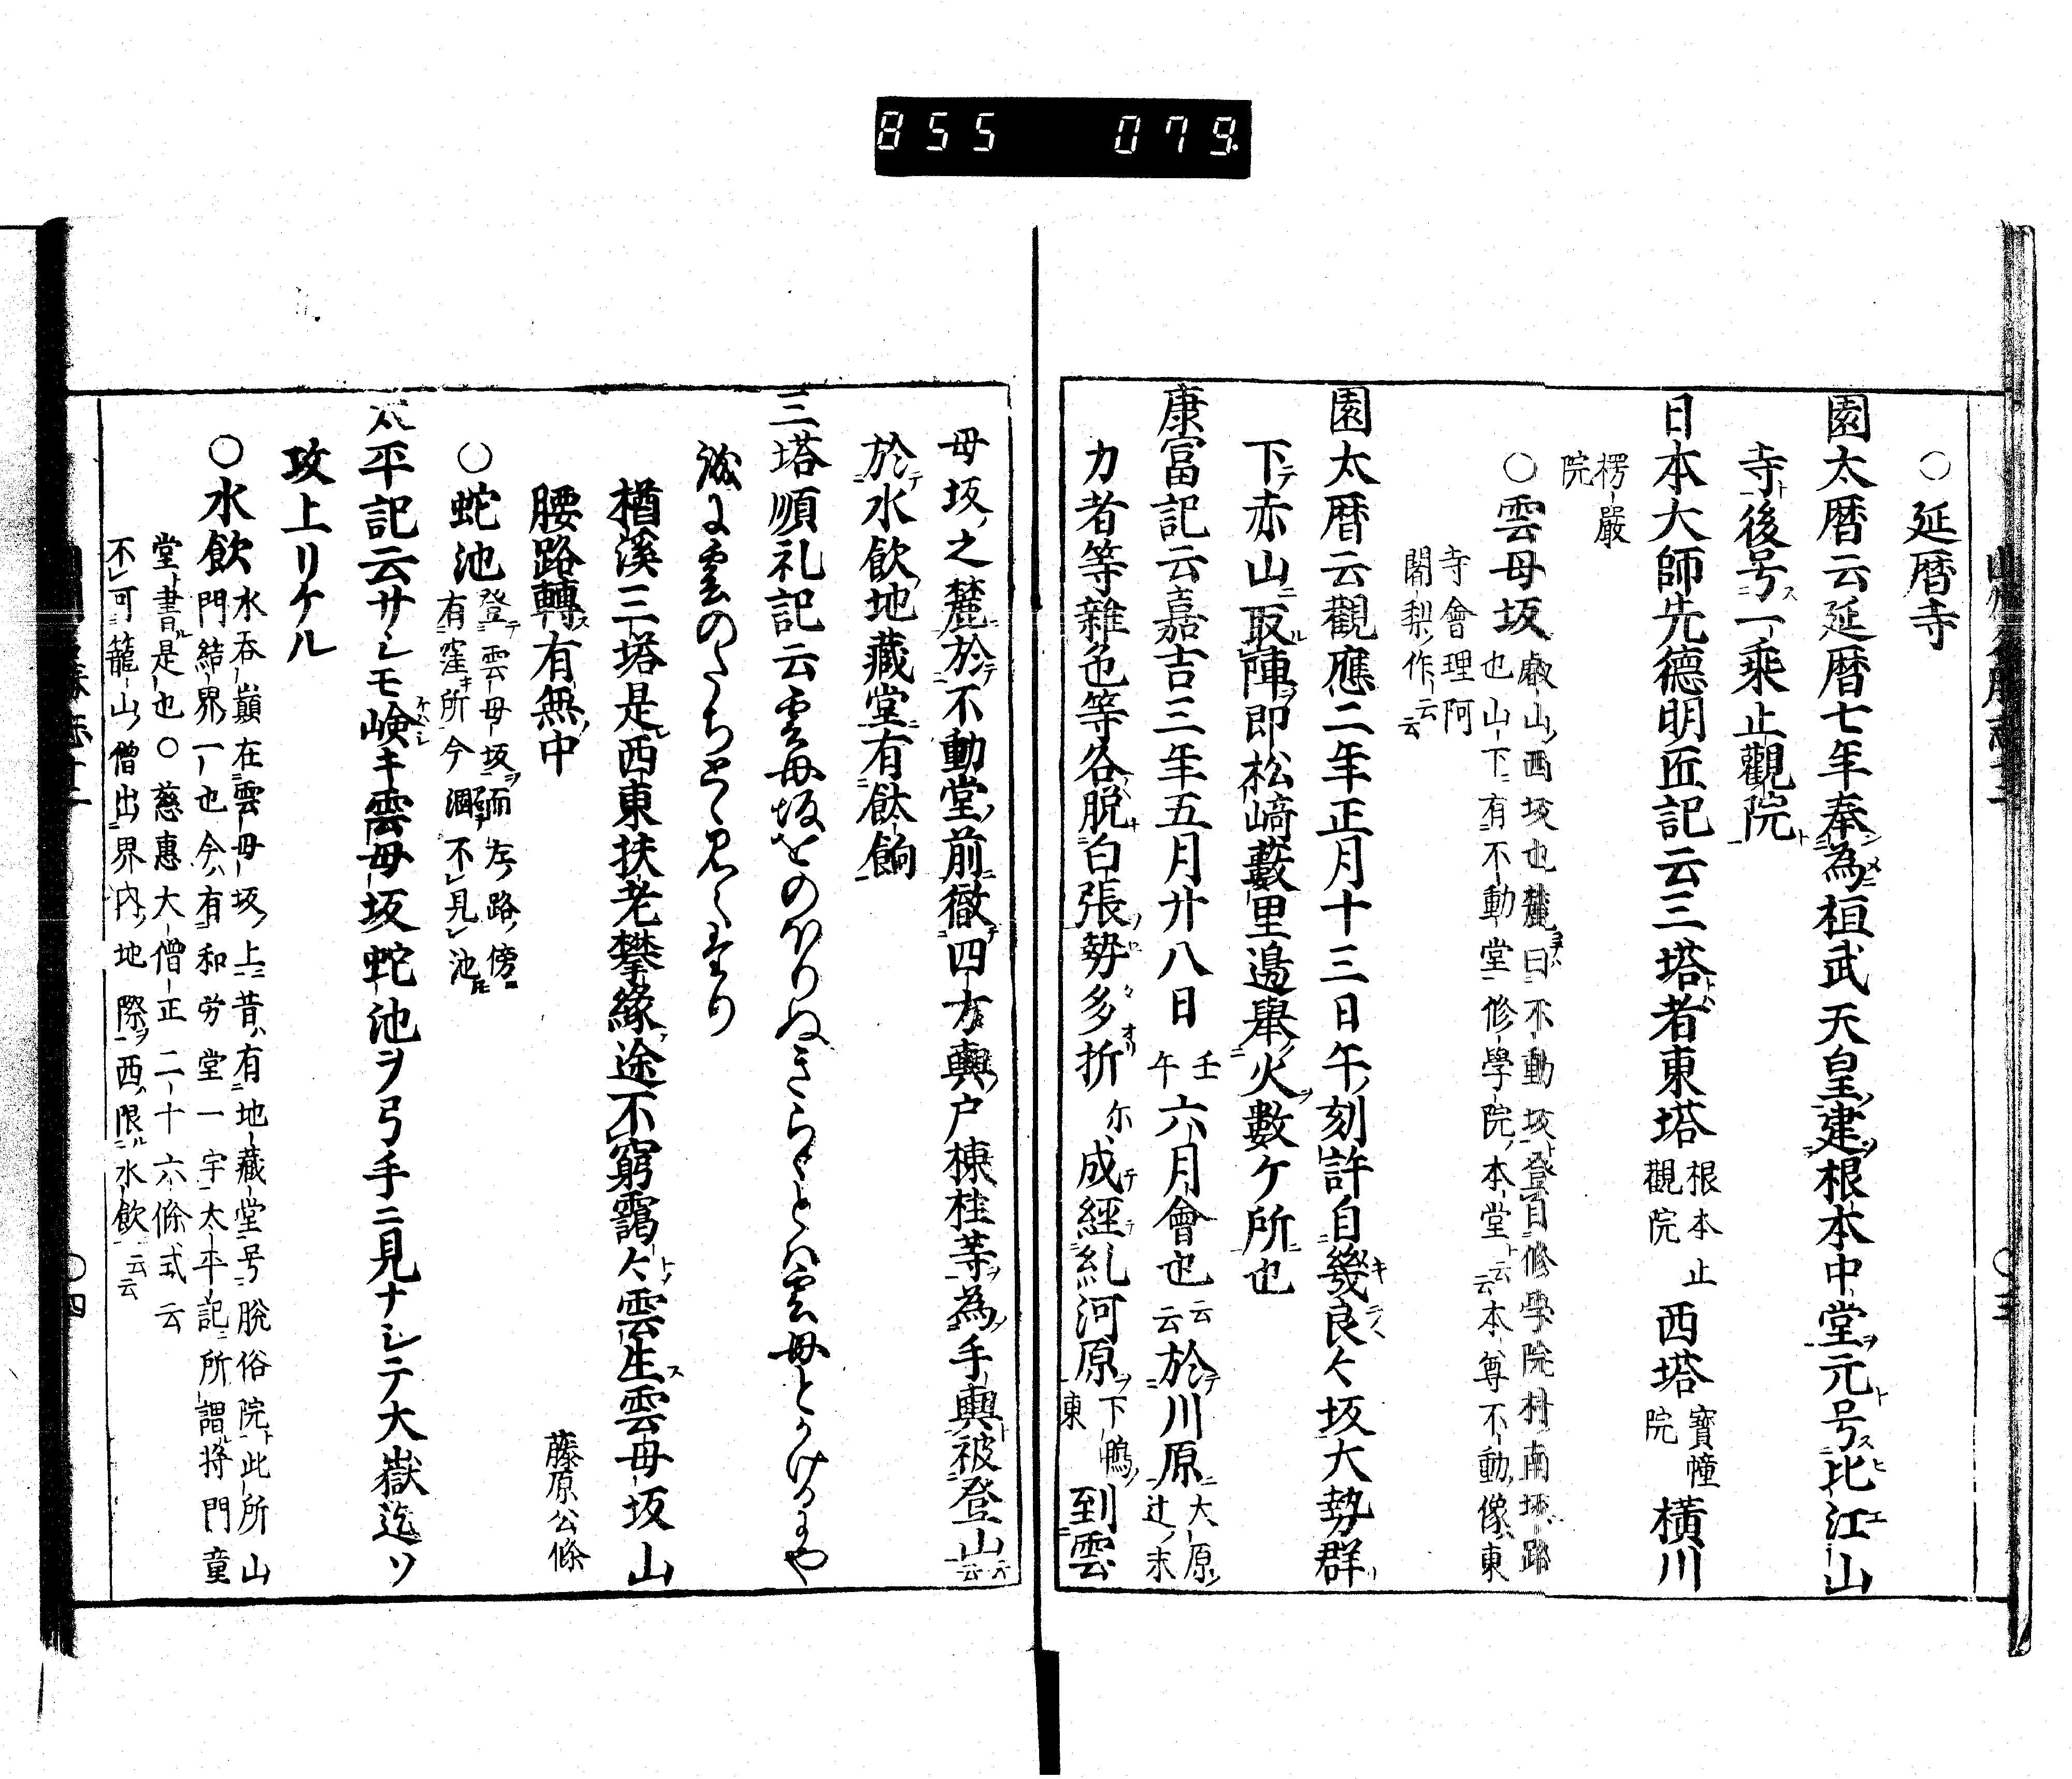 855 079
○延暦寺
園太暦云延暦七年奉為桓武天皇建根本中堂元号比江山
寺後号一乗止觀院
日本大師先德明匠記云三塔者東塔 根本止觀院 西塔 寶幢院 横川
楞嚴院
○雲母坂 叡山西坂也麓曰不動坂登自修學院村南坂路
也山下有不動堂修學院本堂云云本尊不動像東
寺會理阿
闍梨作云云
園太暦云觀應二年正月十三日午刻許自幾良々坂大勢群
下赤山取陣即松﨑藪里邉舉火數ケ所也
康富記云嘉吉三年五月廿八日 壬午 六月會也 云云 於川原 大原辻末
力者等雑色等各脱白張勢多折 尓 成經糺河原 下鴨東 到雲
母坂之麓於不動堂前徹四方輿户棟桂等為手輿被登山云云
於水飲地藏堂有飯餉
三塔順礼記云雲母坂をのほりぬきらゝとハ雲母とかけるにや
誠に雲のたちとく見えたり
楢溪三塔是西東扶老攀緣途不窮靄々雲生雲母坂山
腰路轉有無中
藤原公條
○蛇池 登雲母坂而左路傍
有窪所今涸不見池
太平記云サシモ嶮キ雲母坂蛇池ヲ弓手ニ見ナシテ大嶽迄ソ
攻上リケル
○水飲 水吞巓在雲母坂上昔有地藏堂号脱俗院此所山
門結界一也今有和労堂一宇太平記所謂将門童
堂書是也○慈惠大僧正二十六條式云
不可籠山僧出界内地際西限水飲云云